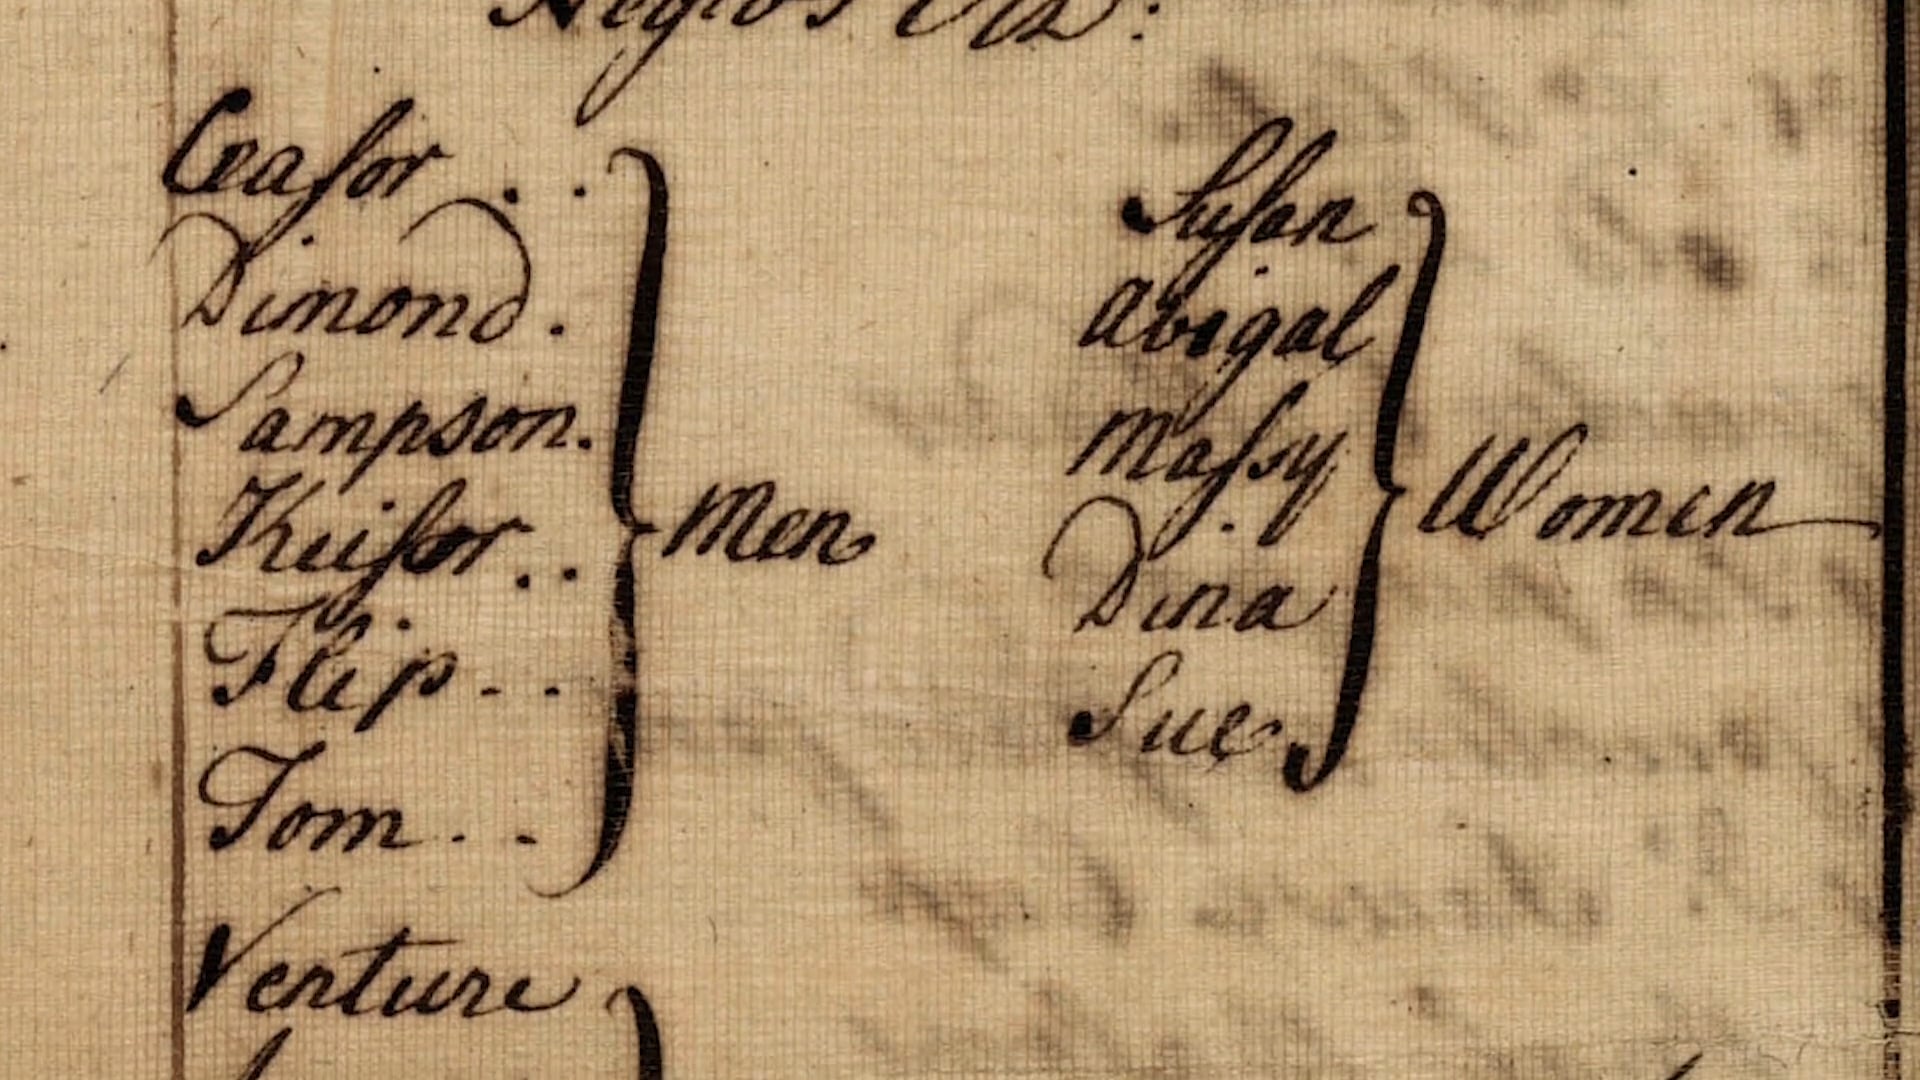 Negro's Viz:
Ceasor . .
Dimond .
Sampson .
Keisor . .
Flip - -
Tom - -
Men
Susan
Abigal
Massy
Dina
Sue
Women
Venture